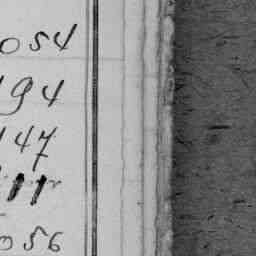 054
194
147
11
056